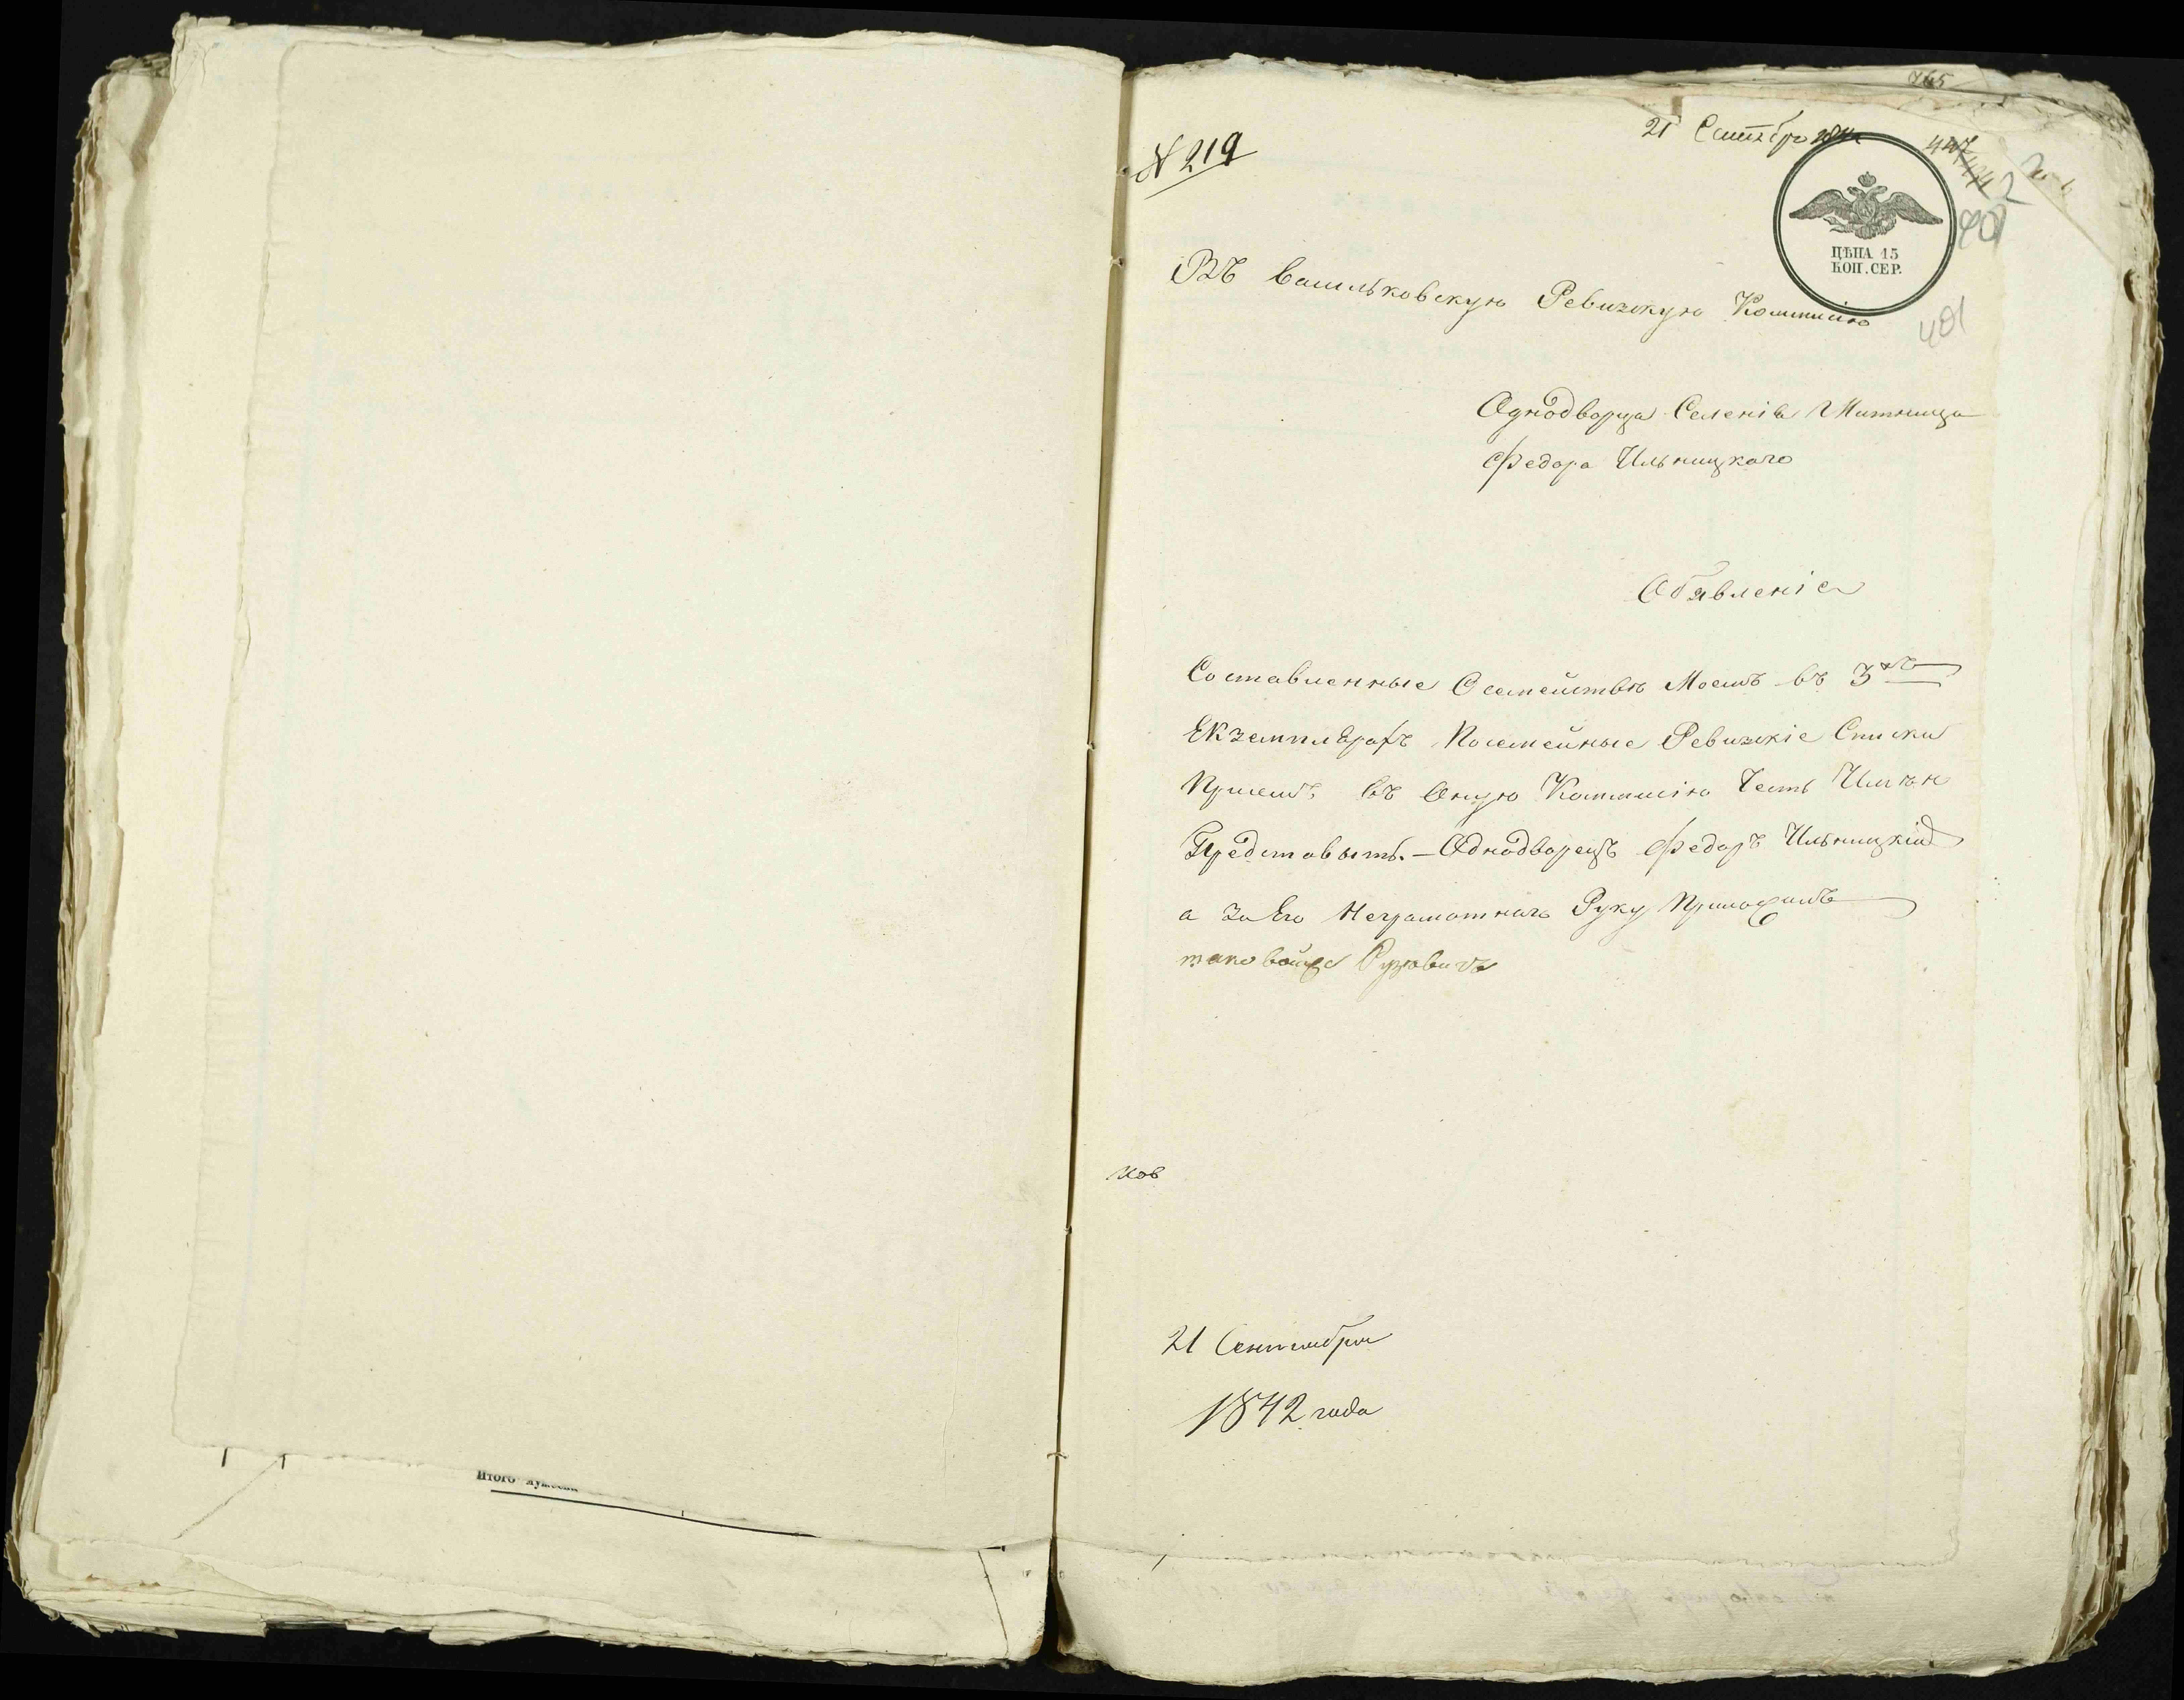 765
21 Сентября
N 219
ЦѢНА 15
КОП. СЕР.
401
401
Въ Васильковскую Ревизкую Коммисію
Однодворца Селенія Митница
Федора Ильницкаго
Обявленіе
Составленные Осемействѣ Моемъ въ 3хъ
Екземплярахъ Посемейные Ревизкіе Списки
Приемъ въ Оную Коммисію Честь Имѣю
Представить. — Однодворецъ Федоръ Ильницкій
а За Его Неграмотнаго Руку Приложилъ
таковойже
21 Сентября
1842 года
Итого